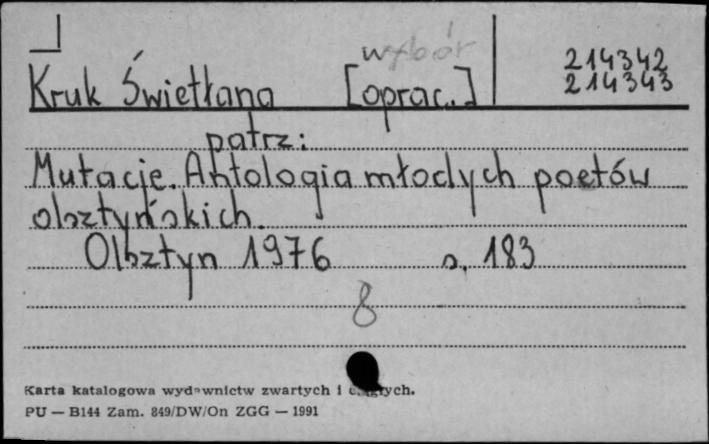 wybór
214342
Kruk Świetłana [oprac..]
214343
patrz:
Mutacje. Antologia młodych poetów
olsztyńskich.
Olsztyn 1976 s. 183
8
Karta katalogowa wydawnictw zwartych i ciągłych.
PU — B144 Zam. 849/DW/On ZGG — 1991